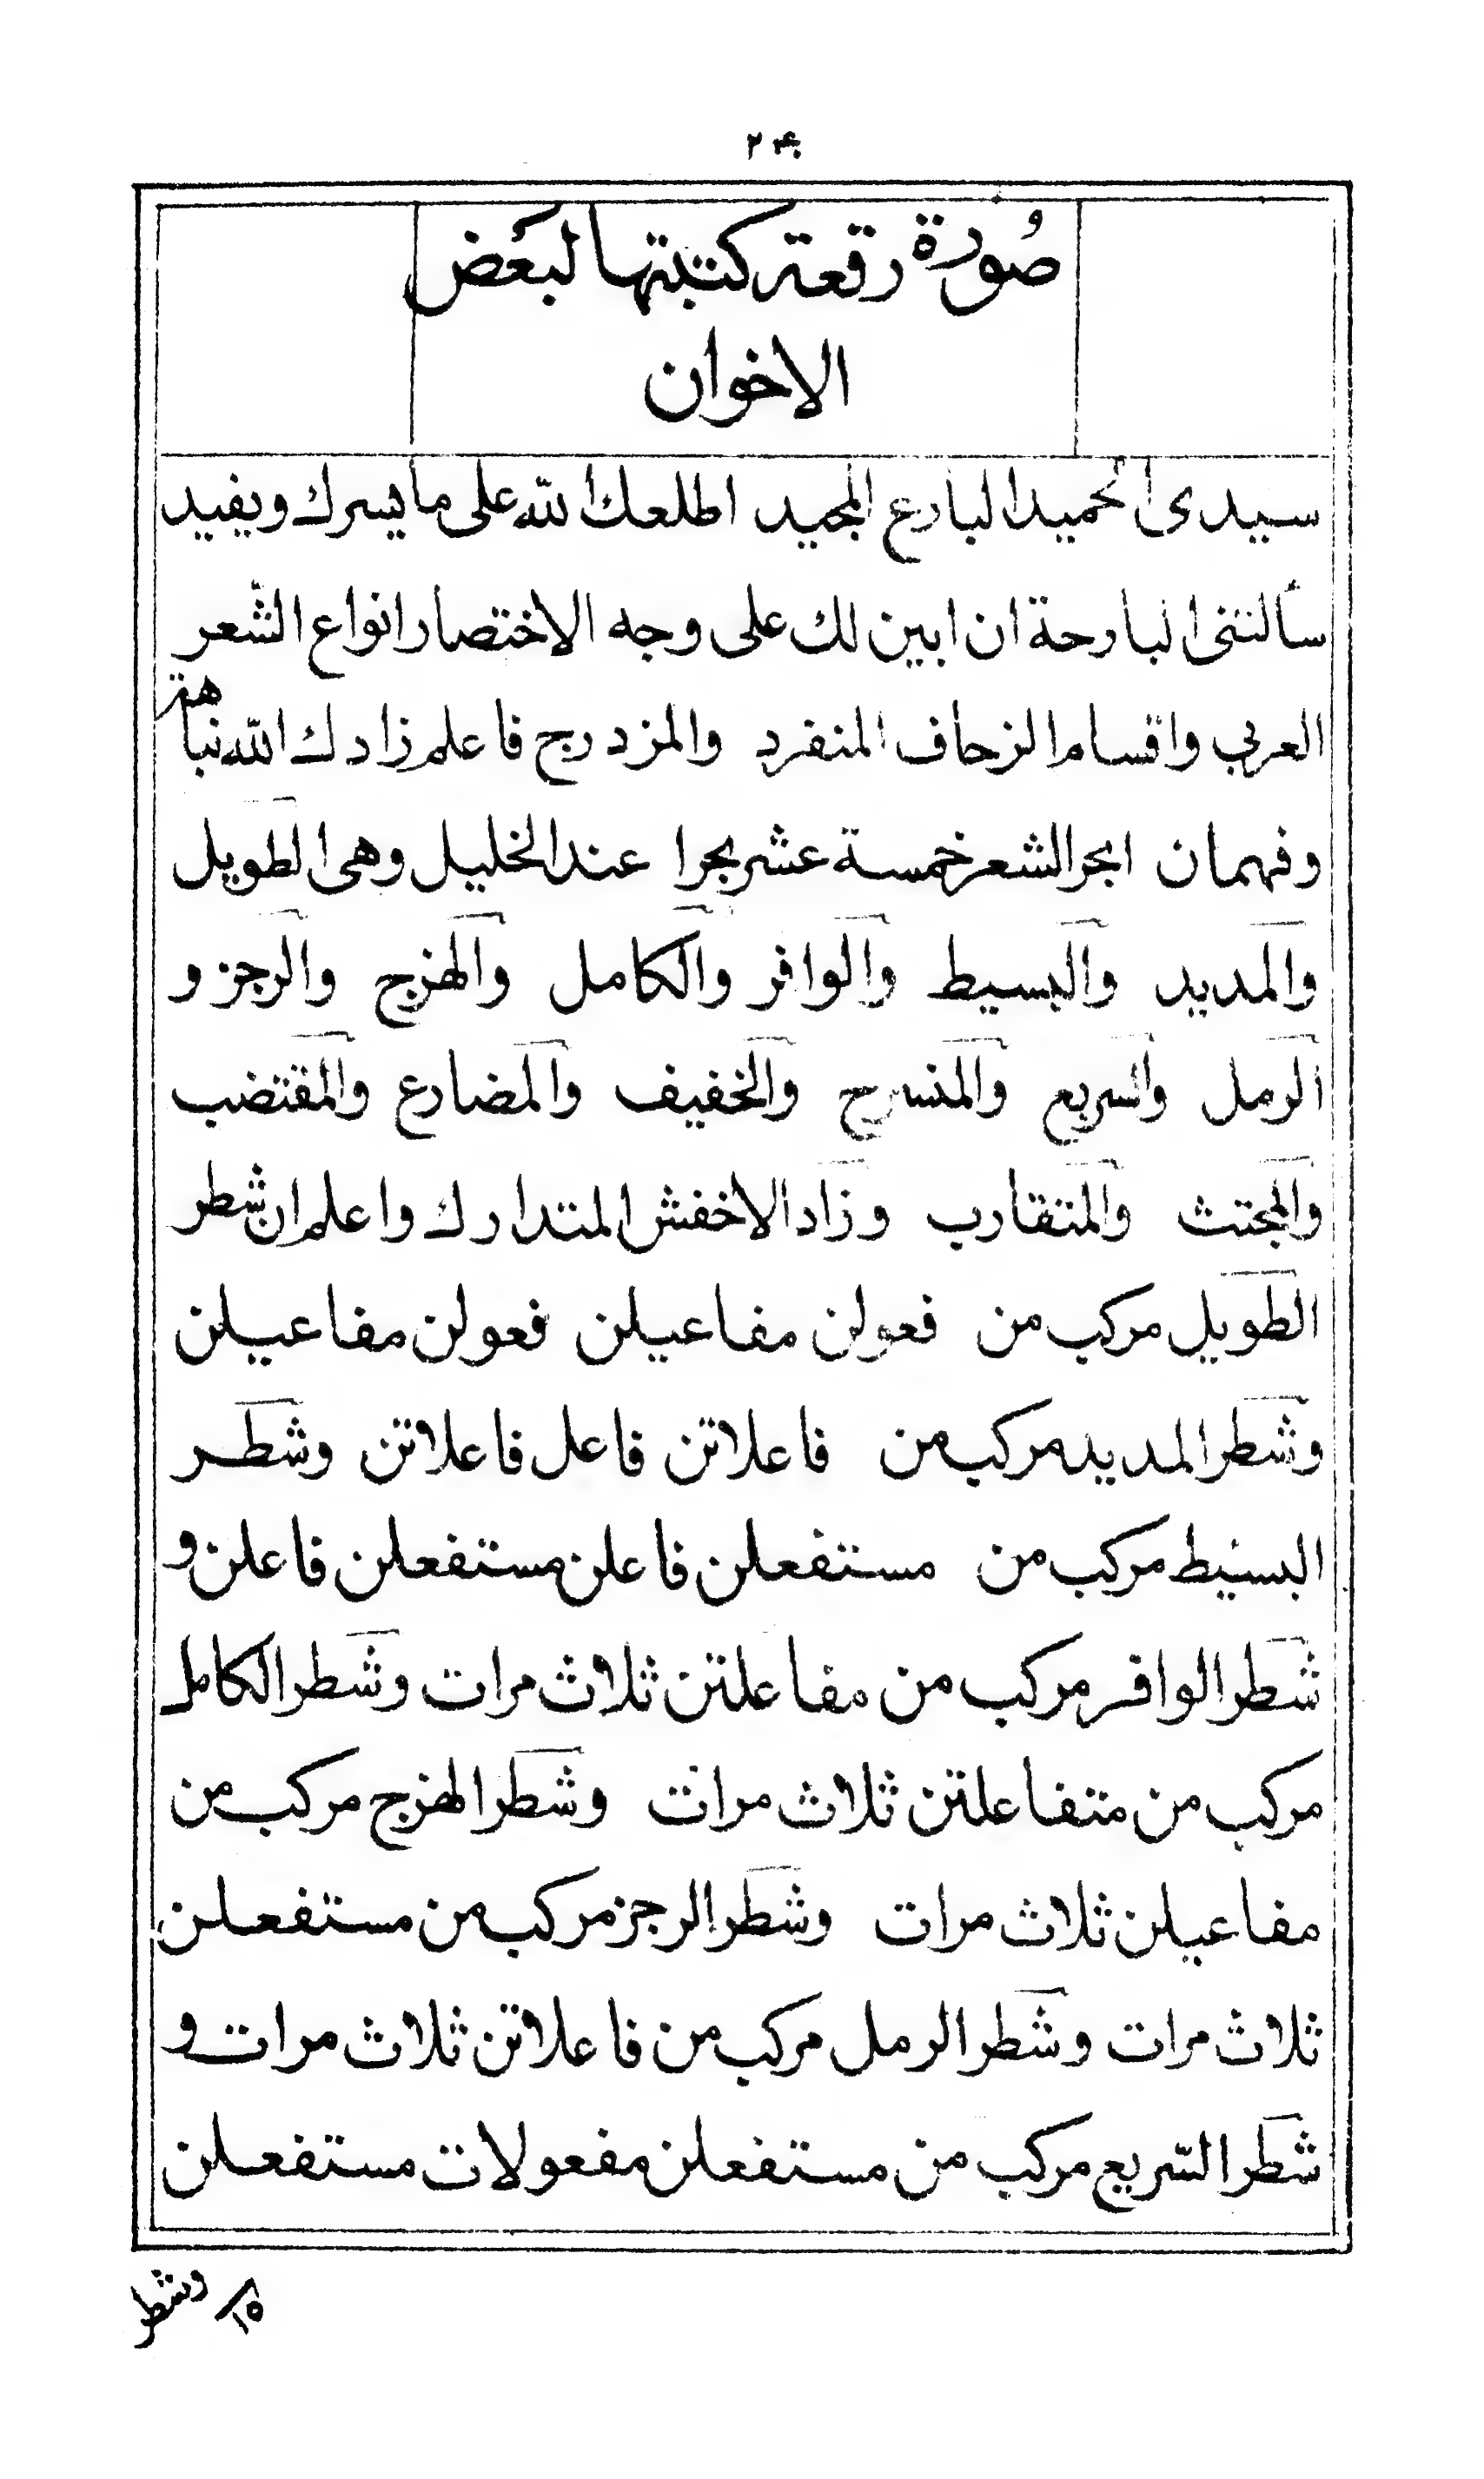 ٢٤٠
صُورة رقعة كتبتها لبعَض
الاخوان
سيدى الحميد البارع المجيد اطلعك الله على ما يسرك ويفيد
سألتنى البارحة ان ابين لك على وجه الاختصار انواع الشّعر
العربي واقسام الزحاف المنفرد والمزدوج فاعلم زادك الله نباهة
وفهما ن ابحر الشعر خمسة عشر بحرا عند الخليل وهى الطويل
والمديد والبسيط والوافر والكامل والهزج والرجز و
الرمل والسريع والمنسرح والخفيف والمضارع والمقتضب
والمجتث والمتقارب وزاد الاخفش المتدارك واعلم ان شطر
الطويل مركب من فعولن مفاعيلن فعولن مفاعيلن
وشطر المديد مركب من فاعلاتن فاعل فاعلاتن وشطر
البسيط مركب من مستفعلن فاعلن مستفعلن فاعلن و
شطر الوافر مركب من مفاعلتن ثلاث مرات وشطر الكامل
مركب من متفاعلتن ثلاث مرات وشطر الهزج مركب من
مفاعيلن ثلاث مرات وشطر الرجز مركب من مستفعلن
ثلاث مرات وشطر الرمل مركب من فاعلاتن ثلاث مرات و
شطر السّريع مركب من مستفعلن مفعولات مستفعلن
١٥ وشطر